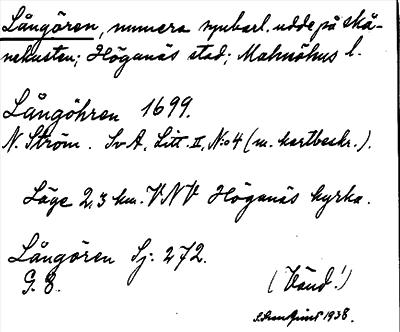 Långören, numera nybarl. udde på skå-
nekusten; Höganäs stad; Malmöhus l.
Långöhren 1699.
N. Ström. Sv A. Litt. II, N:o 4 (m. kartbeskr.).
Läge 2,3 km. VNV Höganäs kyrka.
Långören Sj: 272.
G. E.
(Vänd!)
1938.